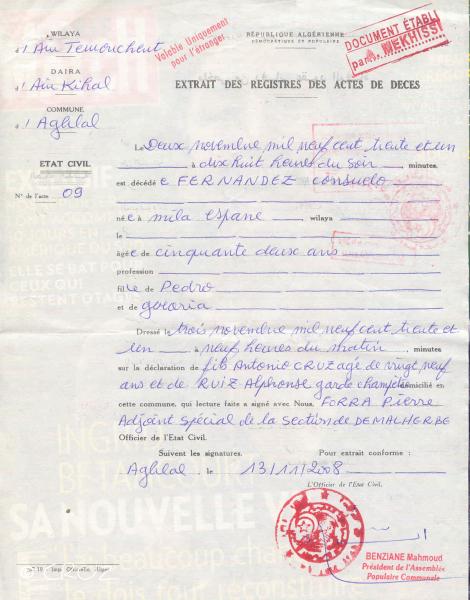 WILAYA
d'Ain Temouchent
DAIRA
d'Ain Kihal
COMMUNE
d'Aghlal
ETAT CIVIL
N° de l'acte 09
Valable Uniquement
pour l'étranger
RÉPUBLIQUE ALGÉRIENNE
DÉMOCRATIQUE ET POPULAIRE
DOCUMENT ÉTABLI
par A. MEKHISSI
EXTRAIT DES REGISTRES DES ACTES DE DECES
Le Deux novembre mil neuf cent trente et un
à dix huit heures du soir, minutes.
est décédée FERNANDEZ Consuelo
née à mila espane wilaya
le
âgée de cinquante deux ans
profession
fille de Pedro
et de gloria
Dressé le trois novembre mil neuf cent trente et
un à neuf heures du matin, minutes
sur la déclaration de fils Antonio CRUZ agé de vingt neuf
ans et de RUIZ Alphonse garde champêtre domicilié en
cette commune, qui lecture faite a signé avec Nous, FORRA Pierre
Adjoint spécial de la section de DEMALHERBE
Officier de l'Etat Civil.
Suivent les signatures. Pour extrait conforme :
Aghlal, le 13/11/2008
L'Officier de l'Etat Civil.
BENZIANE Mahmoud
Président de l'Assemblée
Populaire Communale